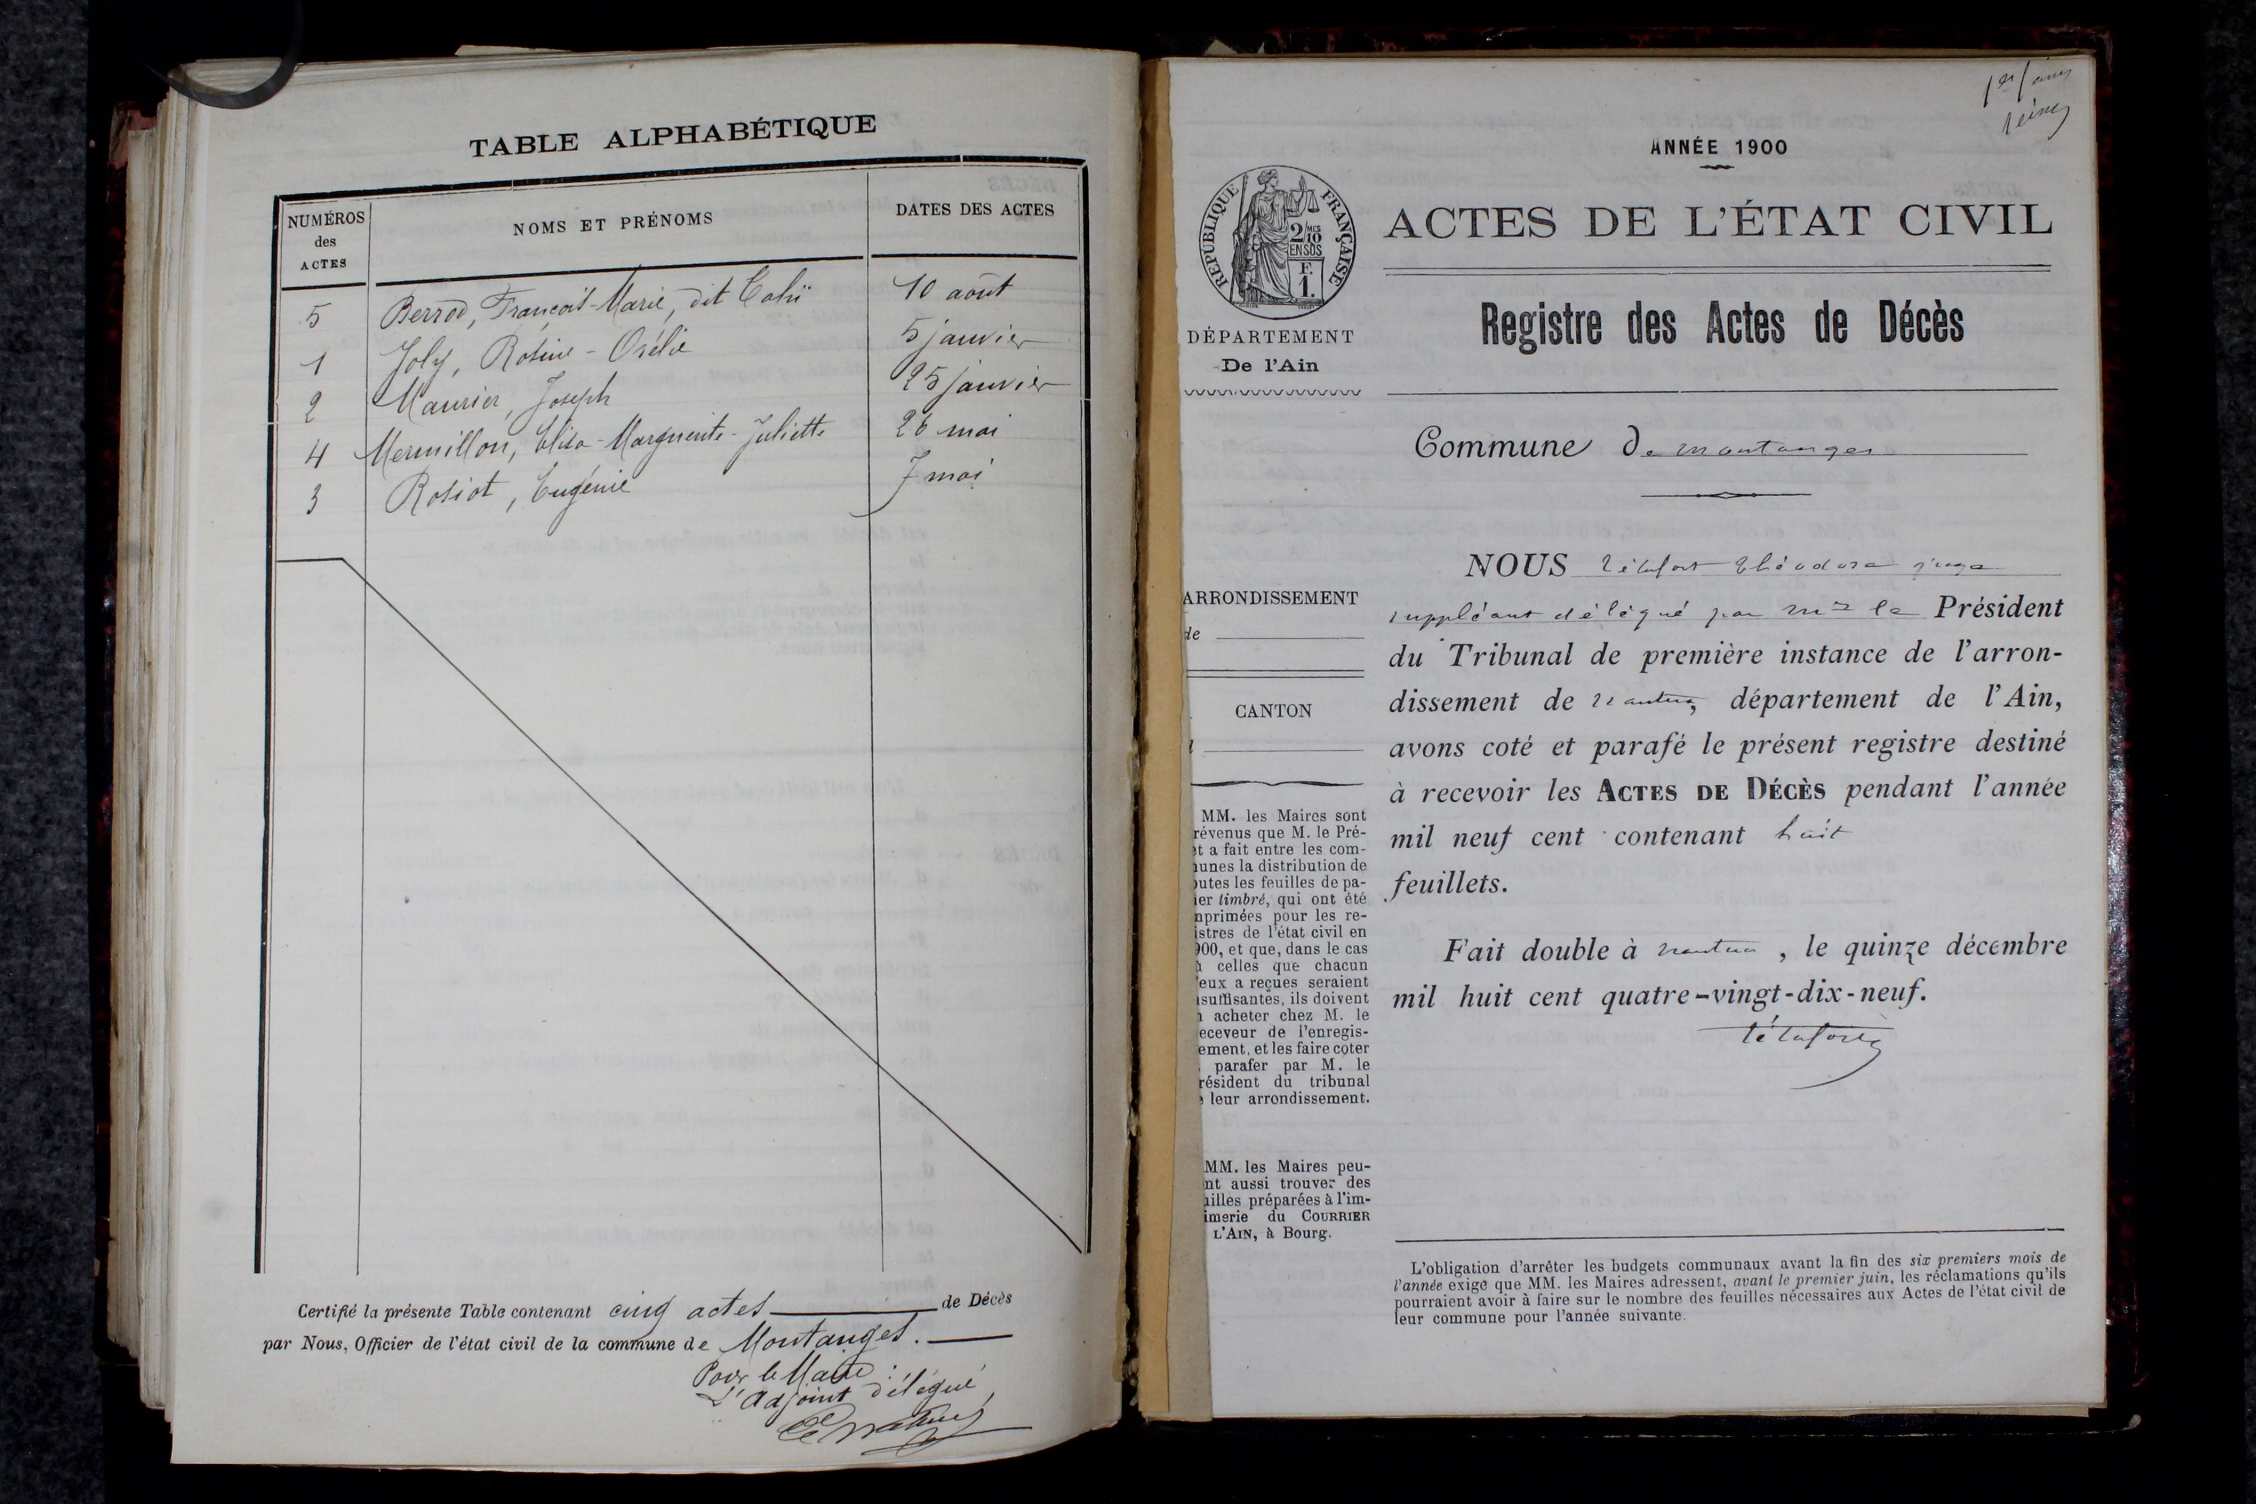 TABLE ALPHABÉTIQUE
NUMÉROS
des
ACTES
NOMS ET PRÉNOMS
DATES DES ACTES
5 Berrod, François-Marie, dit 10 août
1 Joly, Rosine - 5 janvier
2 Maurier, Joseph 25 janvier
4 Mermillon, Elisa-Marguerite-Juliette 26 mai
3 Rosiot, Eugénie 7 mai
Certifié la présente Table contenant cinq actes de Décès
par Nous, Officier de l'état civil de la commune de Montanges.
Pour le Maire:
L'Adjoint délégué,
ANNÉE 1900
RÉPUBLIQUE FRANÇAISE
2/10 MES
EN SUS
F.
1.
ACTES DE L'ÉTAT CIVIL
Registre des Actes de Décès
DÉPARTEMENT
De l'Ain
Commune de montanges
NOUS théodore juge
suppléant délégué par Mr le Président
du Tribunal de première instance de l'arron-
dissement de nantua, département de l'Ain,
avons coté et parafé le présent registre destiné
à recevoir les ACTES DE DÉCÈS pendant l'année
mil neuf cent contenant huit
feuillets.
Fait double à nantua, le quinze décembre
mil huit cent quatre-vingt-dix-neuf.
ARRONDISSEMENT
de
CANTON
MM. les Maires sont
révenus que M. le Pré-
et a fait entre les com-
unes la distribution de
utes les feuilles de pa-
ier timbré, qui ont été
mprimées pour les re-
istres de l'état civil en
900, et que, dans le cas
celles que chacun
eux a reçues seraient
suffisantes, ils doivent
acheter chez M. le
eceveur de l'enregis-
ement, et les faire coter
parafer par M. le
résident du tribunal
leur arrondissement.
MM. les Maires peu-
nt aussi trouver des
uilles préparées à l'im-
imerie du COURRIER
L'AIN, à Bourg.
L'obligation d'arrêter les budgets communaux avant la fin des six premiers mois de
l'année exige que MM. les Maires adressent, avant le premier juin, les réclamations qu'ils
pourraient avoir à faire sur le nombre des feuilles nécessaires aux Actes de l'état civil de
leur commune pour l'année suivante.